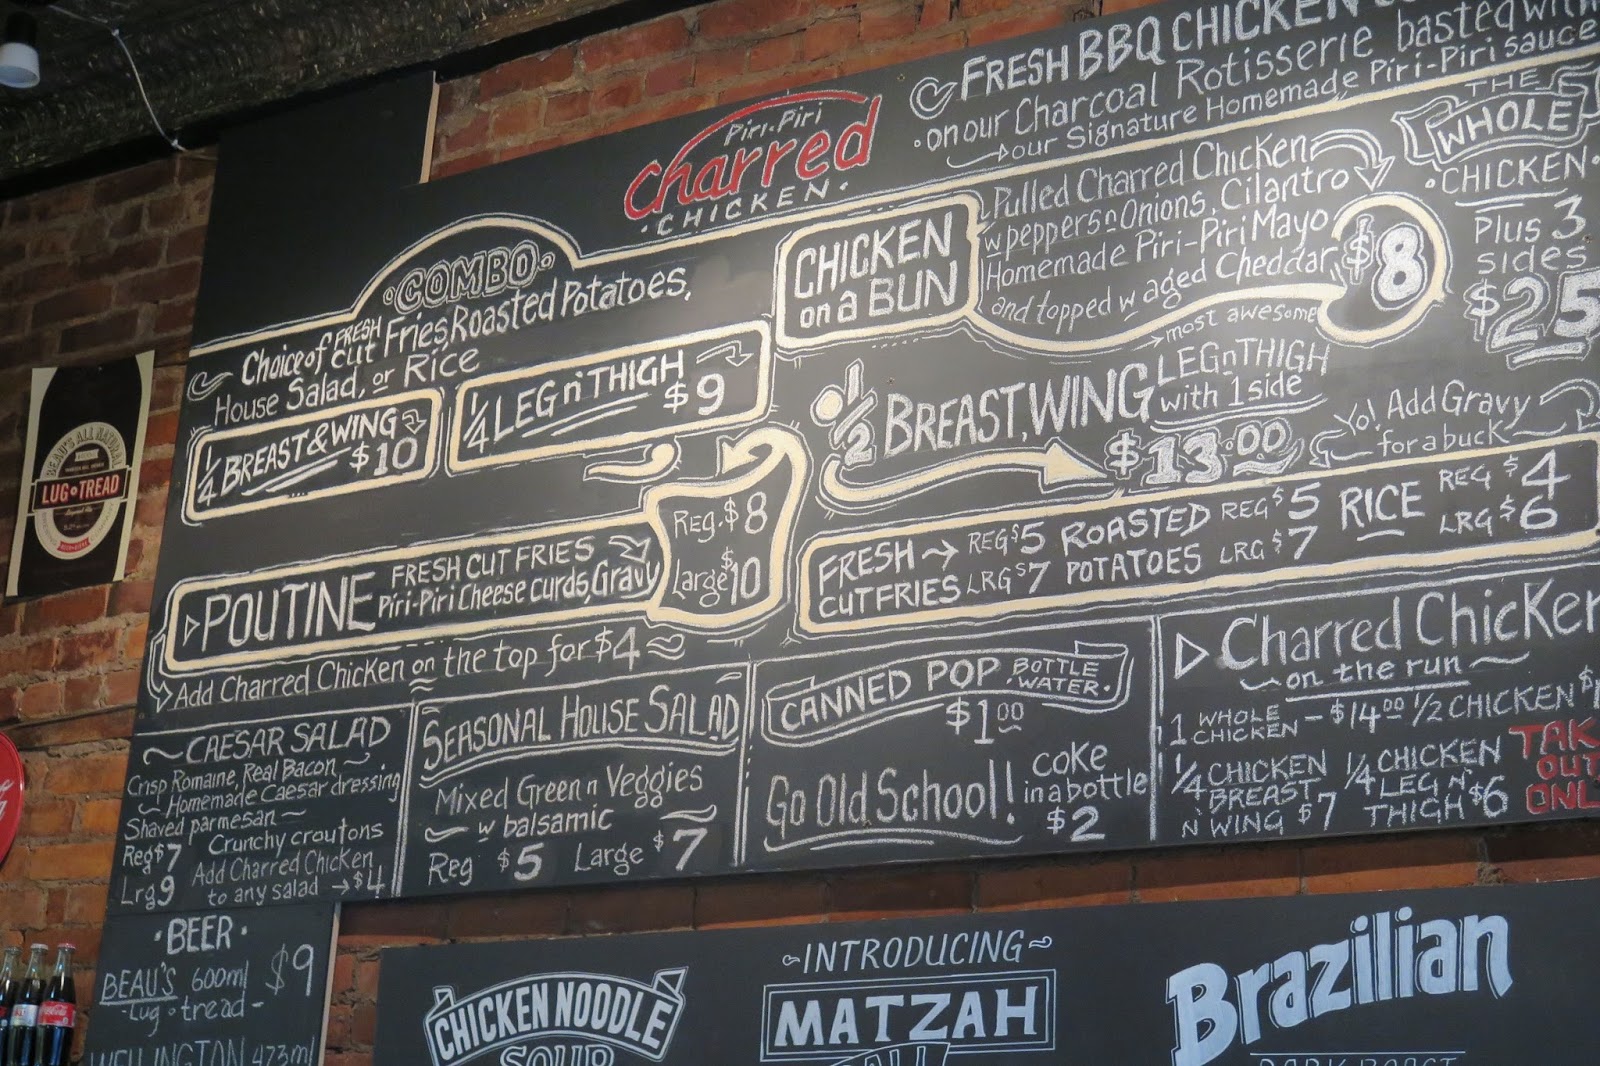 Piri-Piri
Charred
CHICKEN
FRESH BBQ CHICKEN
on our Charcoal Rotisserie basted with
our Signature Homemade Piri-Piri sauce
COMBO
Choice of FRESH cut Fries, Roasted Potatoes,
House Salad, or Rice
1/4 BREAST & WING
$10
1/4 LEG n' THIGH
$9
CHICKEN
on a BUN
Pulled Charred Chicken
w peppers n Onions, Cilantro
Homemade Piri-Piri Mayo
and topped w aged Cheddar
$8
most awesome
THE
WHOLE
CHICKEN
Plus 3
sides
$25
1/2 BREAST, WING
LEG n THIGH
with 1 side
$13.00
Yo! Add Gravy
for a buck
POUTINE
FRESH CUT FRIES
Piri-Piri Cheese curds, Gravy
Reg. $8
Large $10
Add Charred Chicken on the top for $4
FRESH
CUT FRIES
REG $5
LRG $7
ROASTED
POTATOES
REG $5
LRG $7
RICE
REG $4
LRG $6
CAESAR SALAD
Crisp Romaine, Real Bacon
Homemade Caesar dressing
Shaved parmesan
Crunchy croutons
Reg $7
Lrg 9
Add Charred Chicken
to any salad $4
SEASONAL HOUSE SALAD
Mixed Green n Veggies
w balsamic
Reg $5 Large $7
CANNED POP BOTTLE
WATER
$1.00
Go Old School!
coke
in a bottle
$2
Charred Chicken
on the run
1 WHOLE CHICKEN - $14.00 1/2 CHICKEN
1/4 CHICKEN BREAST N' WING $7
1/4 CHICKEN LEG N' THIGH $6
TAKE
OUT
ONLY
BEER
BEAU'S 600ml $9
lug · tread
WELLINGTON 473ml
BEAU'S ALL NATURAL
LUG TREAD
CHICKEN NOODLE
SOUP
INTRODUCING
MATZAH
BALL
Brazilian
DARK ROAST